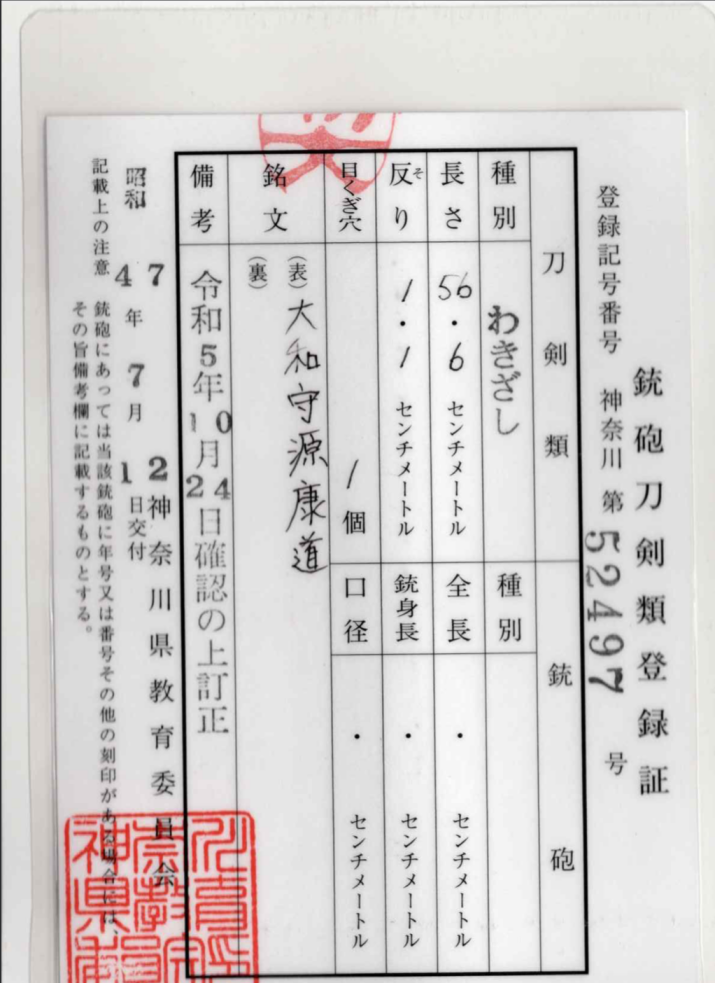 銃砲刀剣類登録証
登録記号番号 神奈川 第 52497 号
刀剣類
種別 わきざし
長さ 56・6 センチメートル
反り そ 1・1 センチメートル
目くぎ穴 1個
銃砲
種別
全長 ・ センチメートル
銃身長 ・ センチメートル
口径 ・ センチメートル
銘文 (表) 大和守源康道
(裏)
備考 令和5年10月24日確認の上訂正
神奈川県教育委員会
昭和 47年7月12日交付
記載上の注意 銃砲にあっては当該銃砲に年号又は番号その他の刻印がある場合には、
その旨備考欄に記載するものとする。